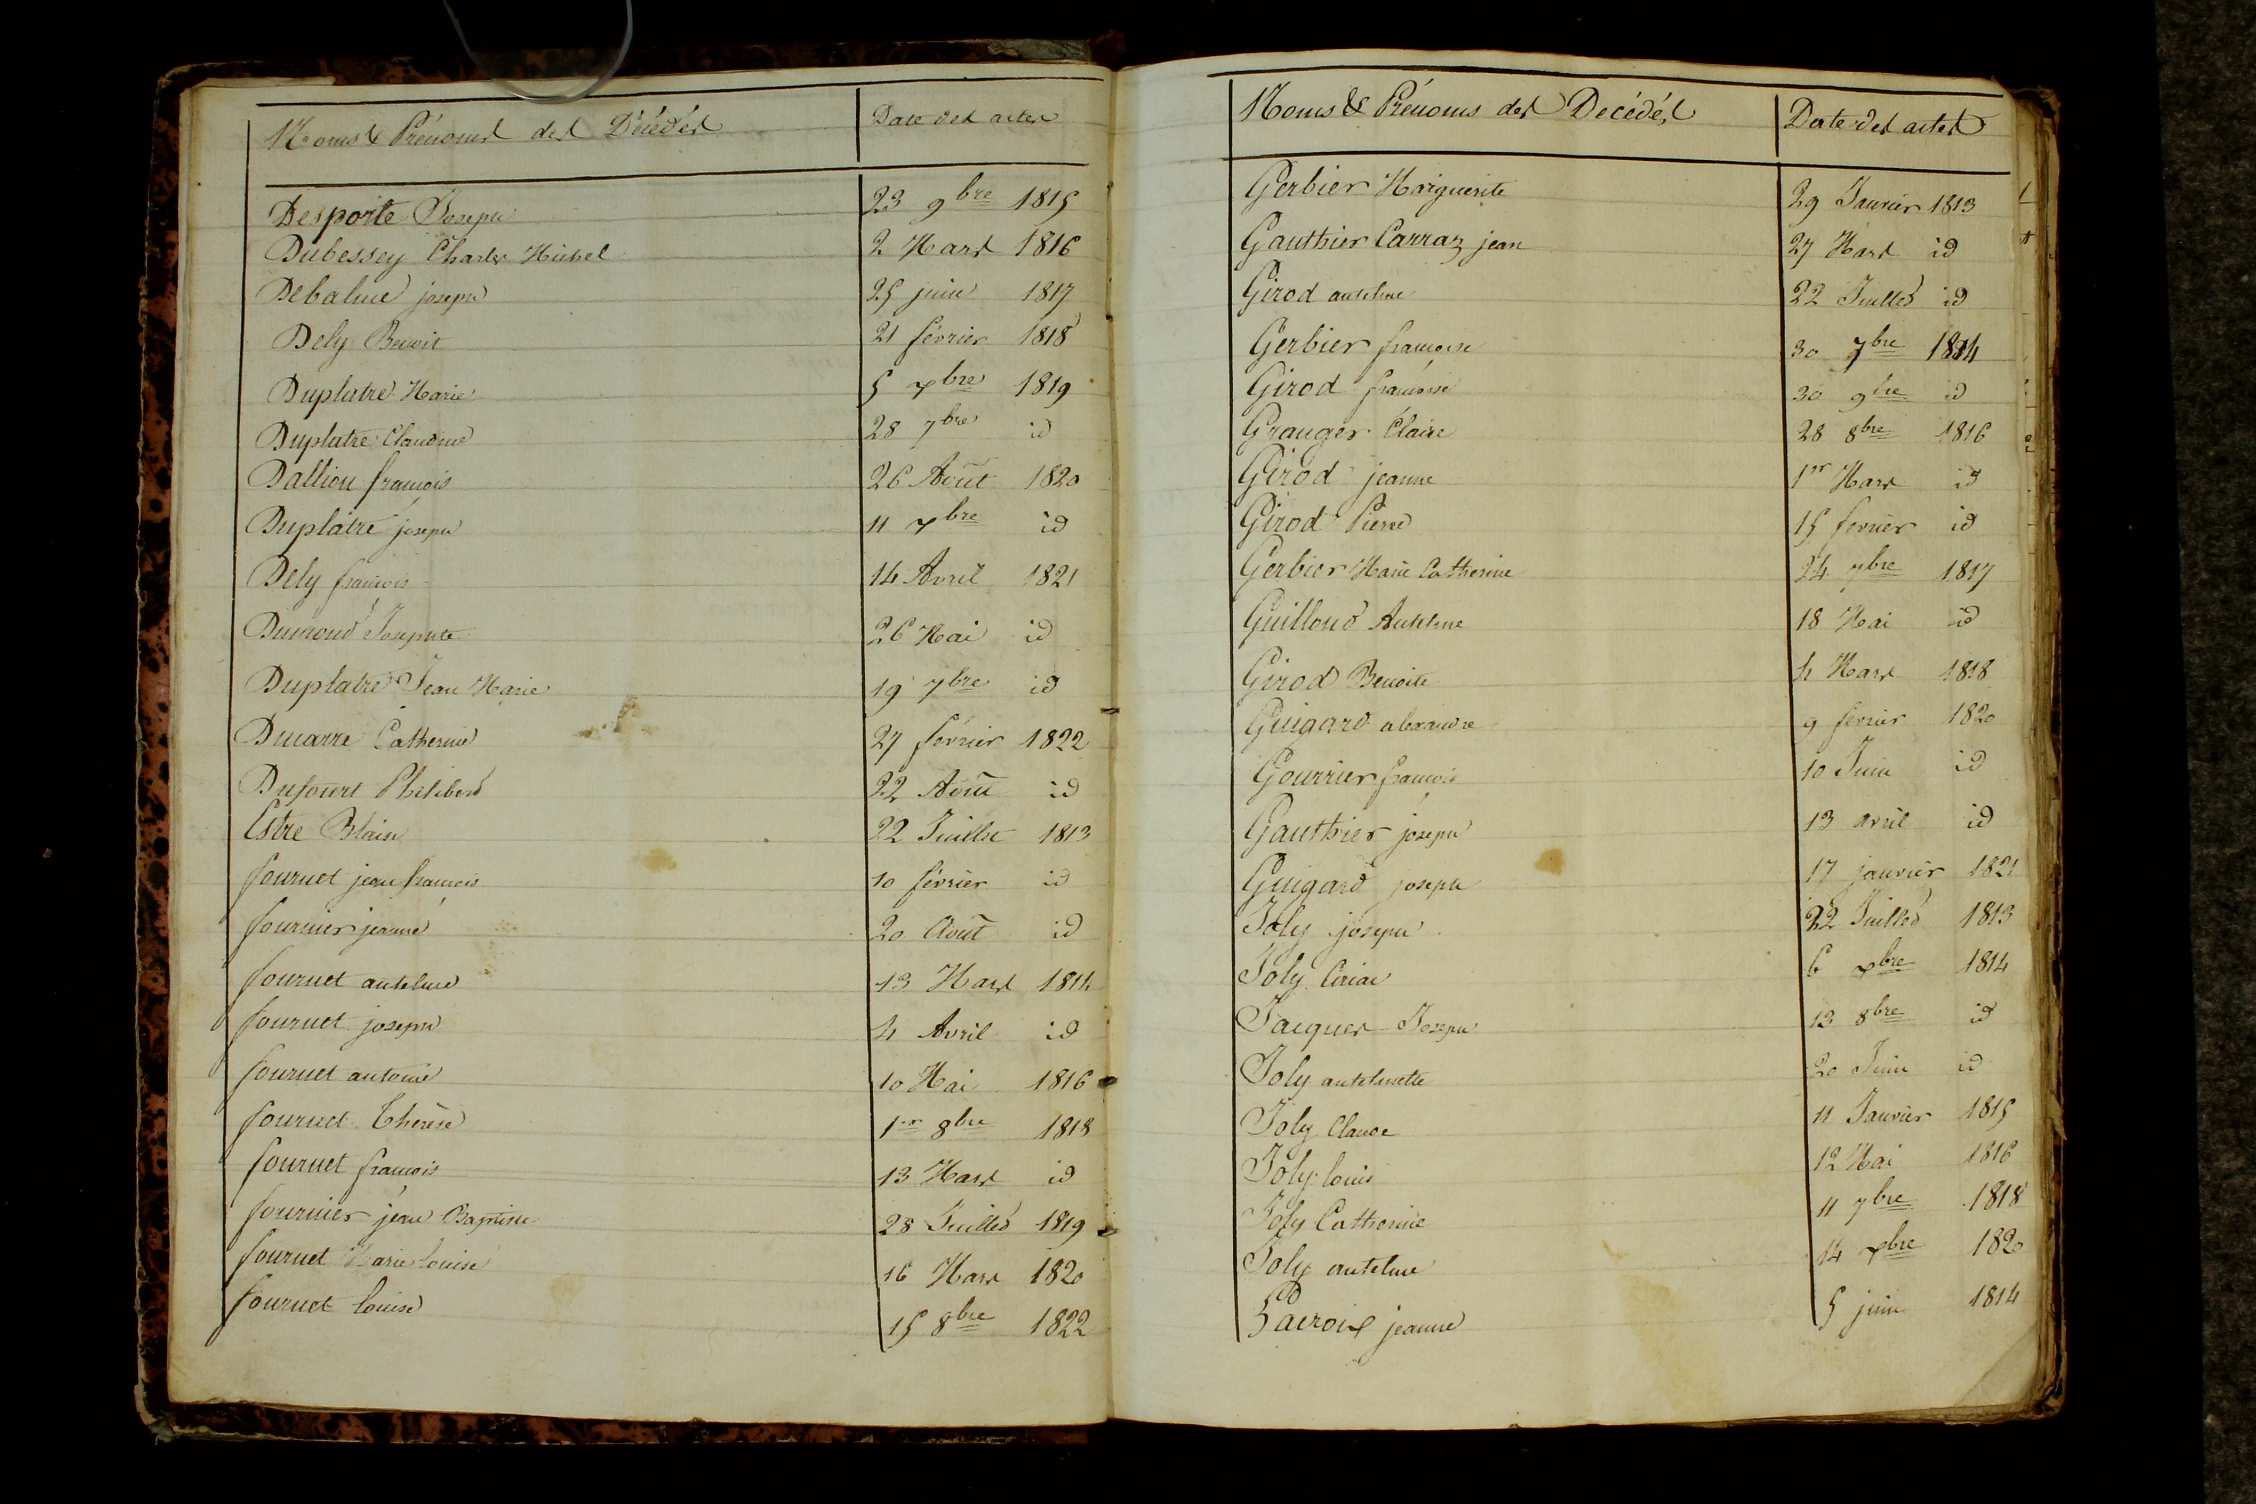 Noms & Prénoms des Décédés
Date des actes
Desporte Joseph 23 9bre 1815
Dubessey Charles Michel 2 Mars 1816
Debalme joseph 25 juin 1817
Dely Benoit 21 février 1818
Duplatre Marie 5 xbre 1819
Duplatre Claudine 28 7bre id
Dallion françois 26 Août 1820
Duplâtre joseph 11 xbre id
Dely françois 14 Avril 1821
Josephte 26 Mai id
Duplatre Jean Marie 19 7bre id
Ducarre Catherine 27 février 1822
Dufourt Philibert 22 Août id
Estre Blaise 22 Juillet 1813
fournet jean françois 10 février id
fournier jeanne 20 Août id
fournet antelme 13 Mars 1814
fournet joseph 4 Avril id
fournet antoine 10 Mai 1816
fournet Thérèse 1er 8bre 1818
fournet françois 13 Mars id
fournier jean Baptiste 28 Juillet 1819
fournet Marie louise 16 Mars 1820
fournet louise 15 8bre 1822
Noms & Prénoms des Décédés
Date des actes
Gerbier Marguerite 29 Janvier 1813
Gauthier Carraz jean 27 Mars id
Girod antelme 22 Juillet id
Gerbier françoise 30 7bre 1814
Girod françoise 30 9bre id
Granger Claire 28 8bre 1816
Girod jeanne 1er Mars id
Girod Pierre 15 fevrier id
Gerbier Marie Catherine 24 7bre 1817
Guilloud Antelme 18 Mai id
Girod Benoite 4 Mars 1818
Guigard alexandre 9 février 1820
Gourrier françois 10 Juin id
Gauthier joseph 13 avril id
Guigard joseph 17 janvier 1821
Joly joseph 22 Juillet 1813
Joly Ciriac 6 xbre 1814
Jacquet Joseph 13 8bre id
Joly antelmette 20 Juin id
Joly Claude 11 Janvier 1815
Joly louis 12 Mai 1816
Joly Catherine 11 7bre 1818
Joly antelme 14 xbre 1820
Lacroix jeanne 5 juin 1814